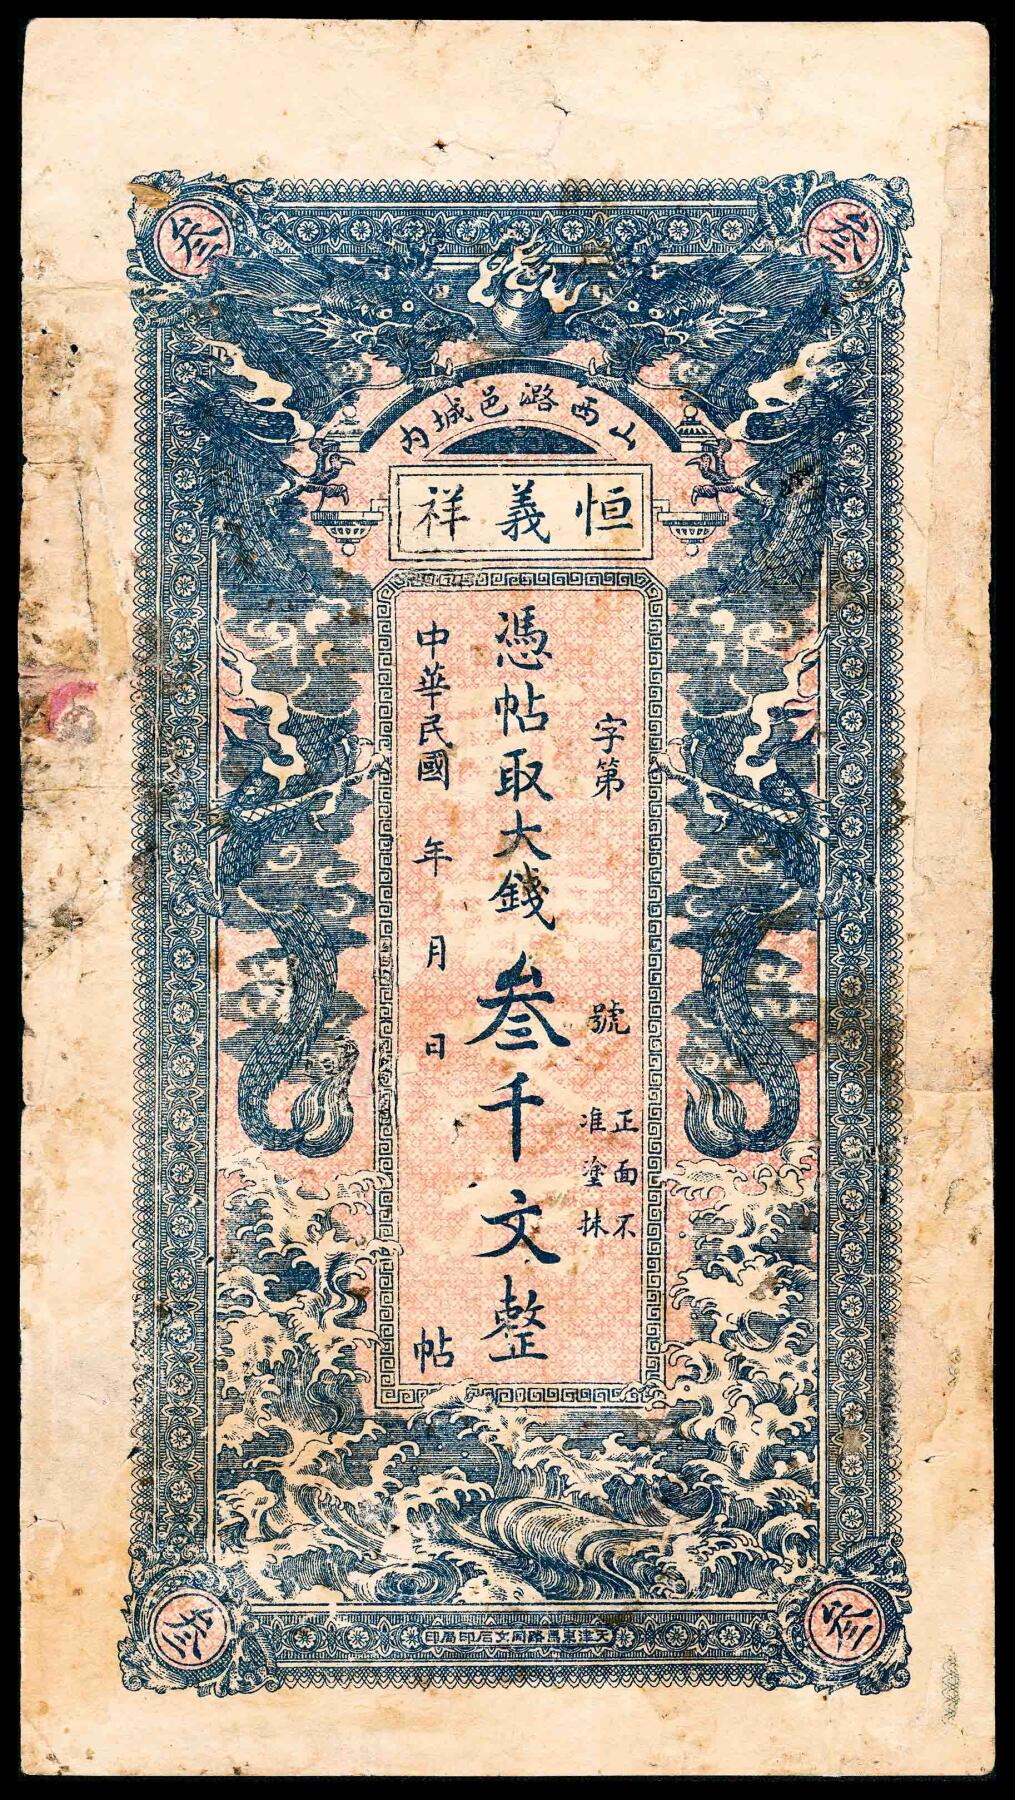 叁
叁
山西潞邑城内
恒義祥
字第 號
正面不
准塗抹
憑帖取大錢叁千文整
中華民國 年 月 日 帖
叁
叁
天津東馬路同文石印局印